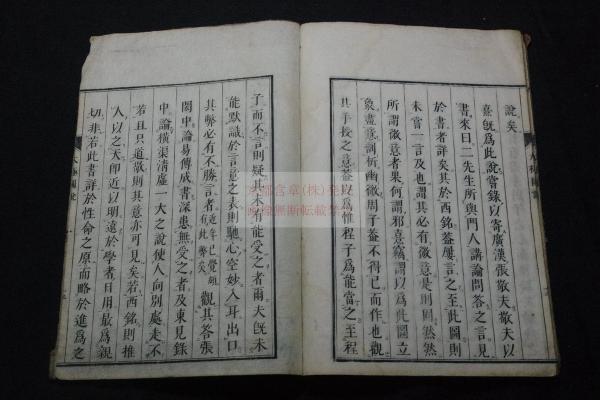 說矣
熹旣爲此說嘗錄以寄廣漢張敬夫敬夫以
書來曰二先生所與門人講論問答之言見
於書者詳矣其於西銘蓋屢言之至此圖則
未嘗一言及也謂其必有微意是則固然然
所謂微意者果何謂邪熹竊謂以爲此圖立
象盡意剖析幽微周子蓋不得已而作也觀
其手授之意蓋以爲惟程子爲能當之至程
太極圖說
子而不言則疑其未有能受之者爾夫旣未
能默識於言意之表則馳心空妙入耳出口
其弊必有不勝言者近年已覺頗有此弊矣觀其答張
閎中論易傳成書深患無受之者及東見錄
中論橫渠淸虛一大之說使人向別處走不
若且只道敬則其意亦可見矣若西銘則推
人以之天卽近以明遠於學者日用最爲親
切非若此書詳於性命之原而略於進爲之
太極圖說